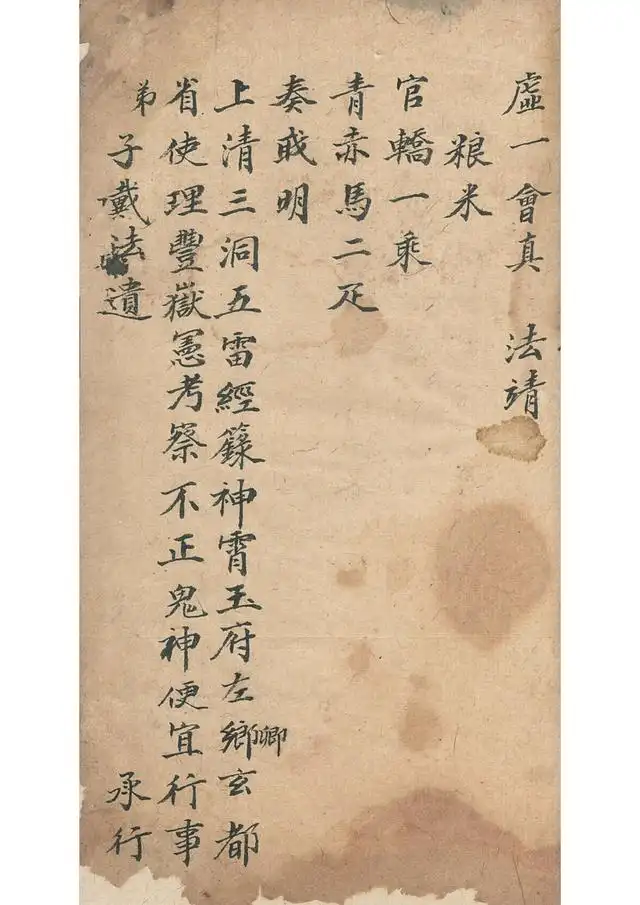 虛一會真 法靖
粮米
官轎一乘
青赤馬二疋
奏明
上清三洞五雷經籙神霄玉府左鄉卿玄都
省使理豐嶽憲考察不正鬼神便宜行事
弟子戴法遺 承行